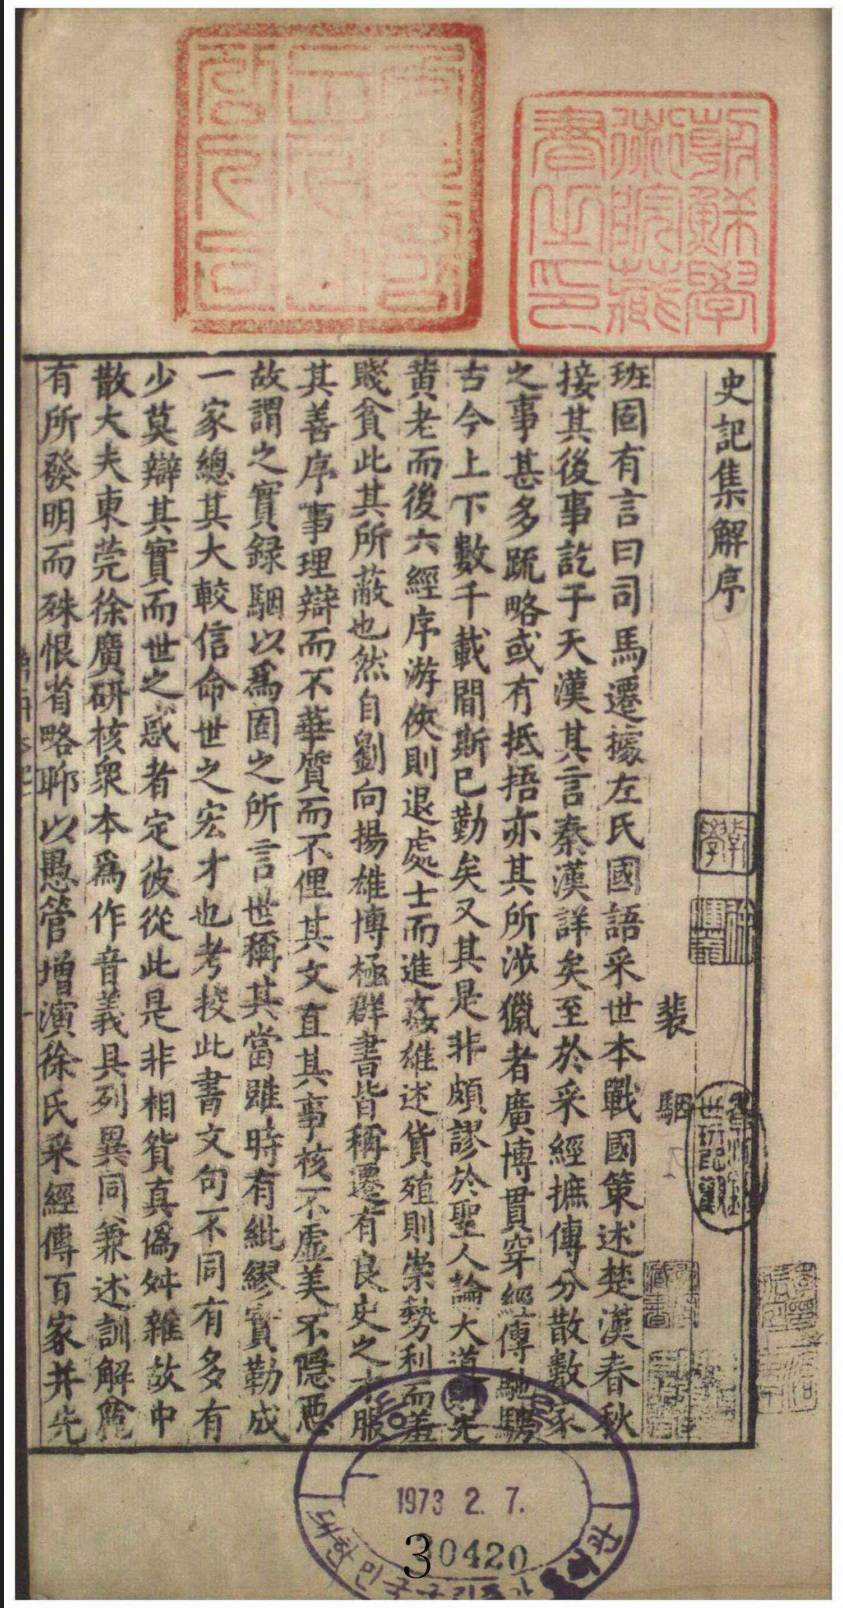 朝鮮學
術院藏
書之印
史記集解序
裴駰
班固有言曰司馬遷據左氏國語采世本戰國策述楚漢春秋
接其後事訖于天漢其言秦漢詳矣至於采經摭傳分散數家
之事甚多踈略或有抵捂亦其所涉獵者廣博貫穿經傳馳騁
古今上下數千載閒斯已勤矣又其是非頗謬於聖人論大道則先
黄老而後六經序游俠則退處士而進姦雄述貨殖則崇勢利而羞
賤貧此其所蔽也然自劉向揚雄博極群書皆稱遷有良史之才服
其善序事理辯而不華質而不俚其文直其事核不虛美不隱惡
故謂之實録駰以爲固之所言世稱其當雖時有紕繆實勒成
一家總其大較信命世之宏才也考挍此書文句不同有多有
少莫辯其實而世之惑者定彼從此是非相貿真僞舛雜故中
散大夫東莞徐廣研核衆本爲作音義具列異同兼述訓解麁
有所發明而殊恨省略聊以愚管增演徐氏采經傳百家并先
1973 2. 7.
30420
대한민국